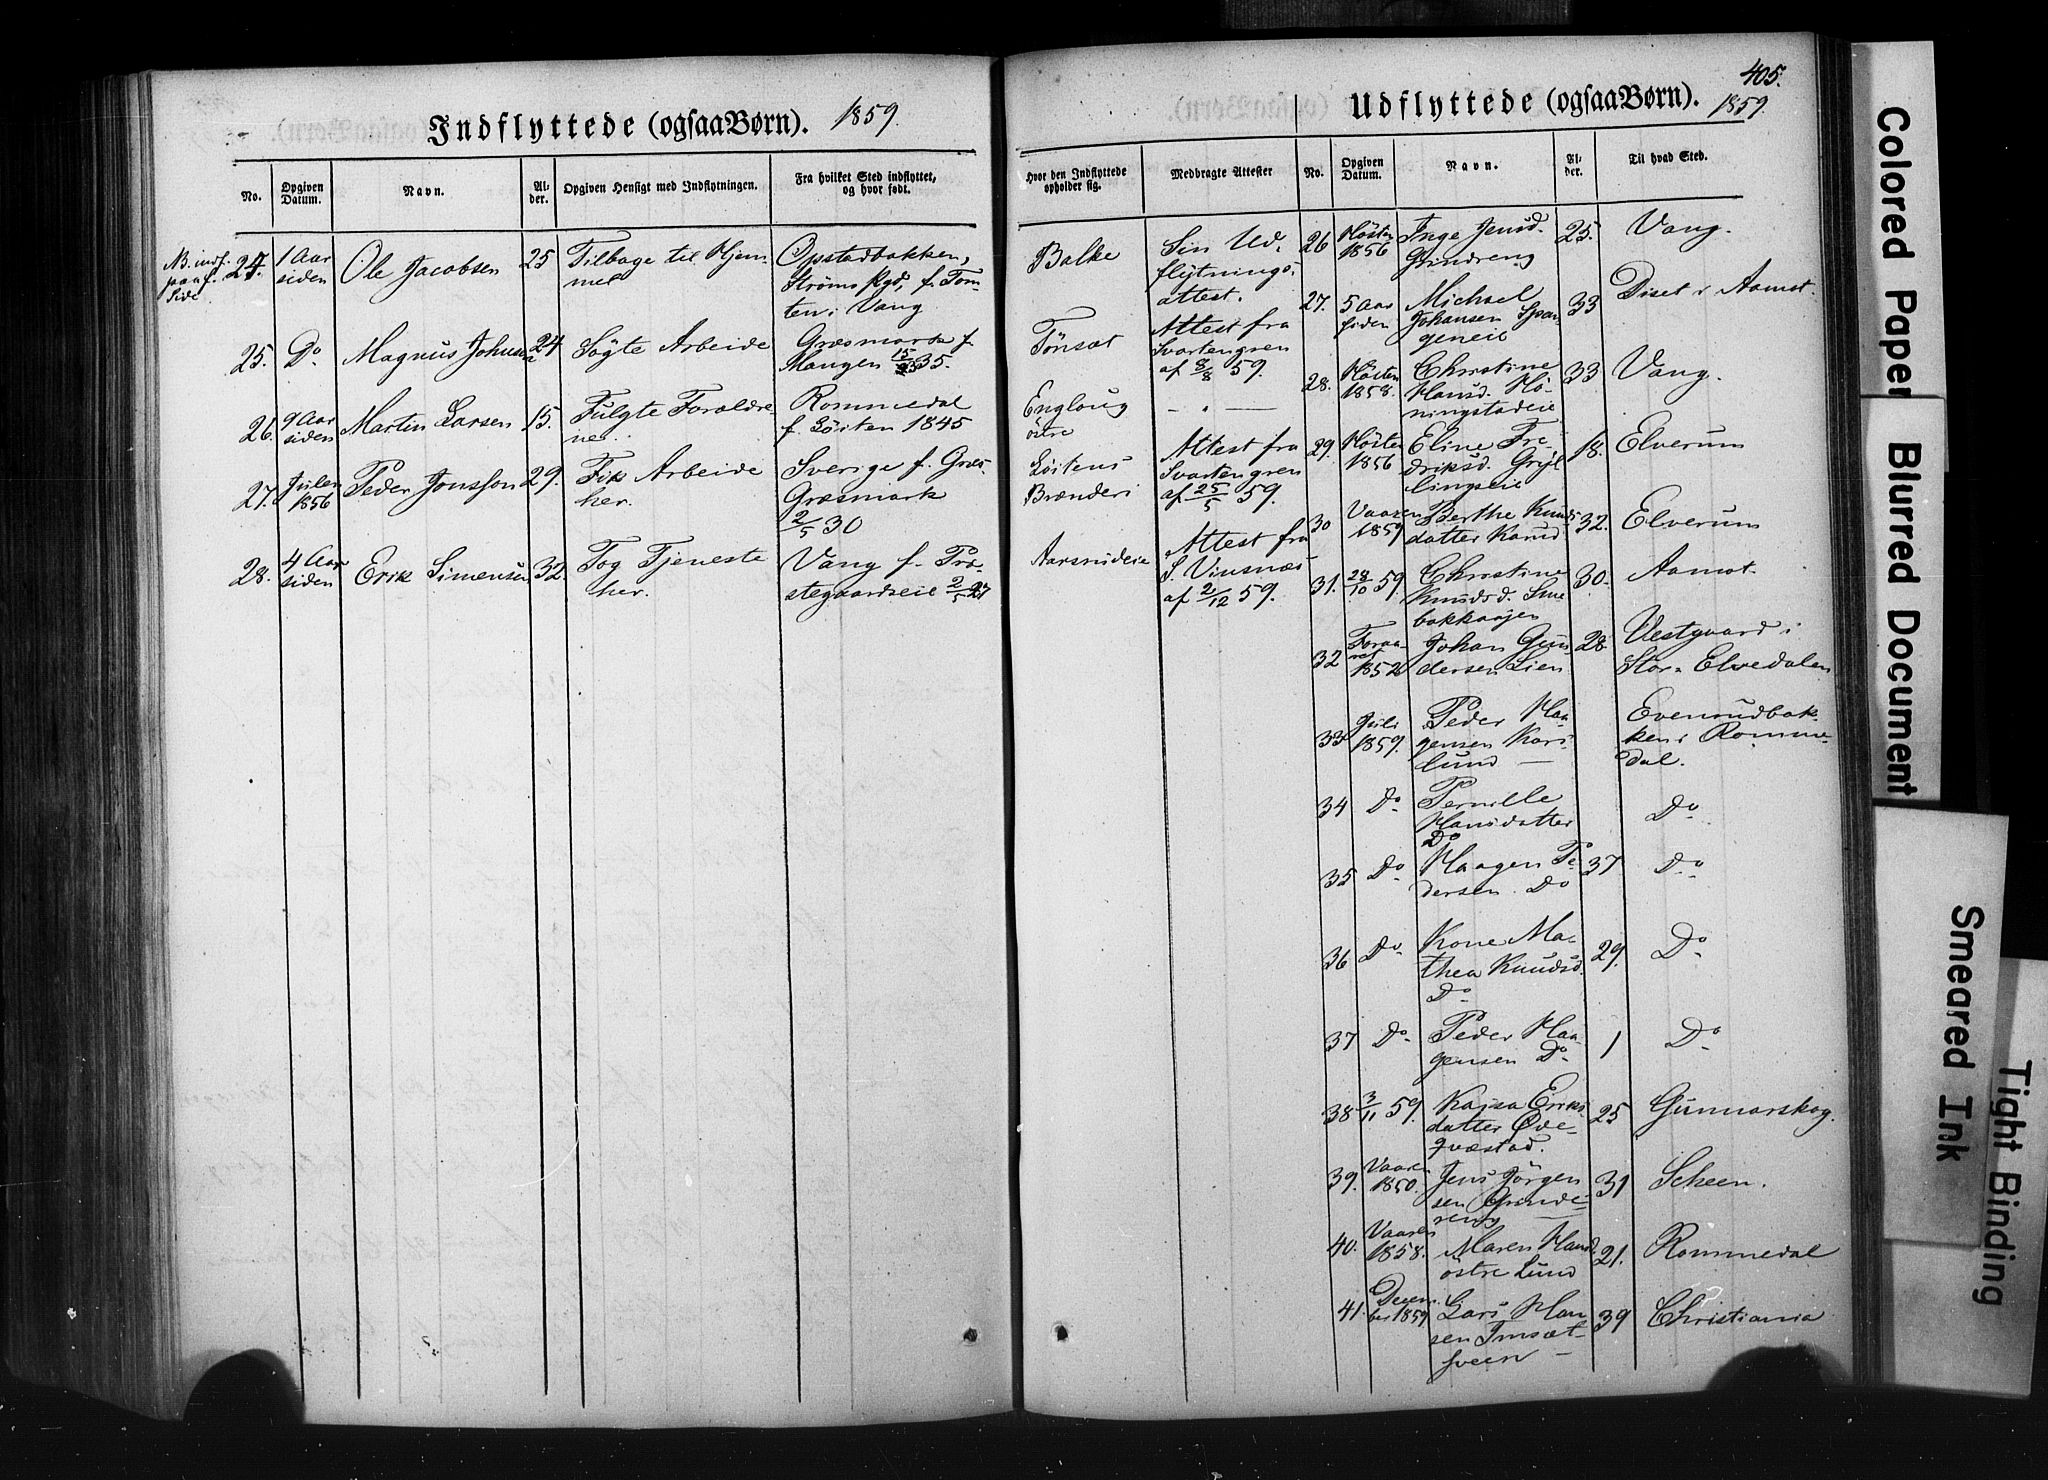 Indflyttede (ogsaa Børn). 1859.
No. Opgiven Datum. Navn. Alder. Opgiven Hensigt med Indflytningen. Fra hvilket Sted indflyttet, og hvor født.
NB. indf. paa f. Side
24. 1 Aar siden Ole Jacobsen 25 Tilbage til Hjemmet Opstadbakken, Strøms Pgd, f. Tomten i Vang
25. Do Magnus Johnsen 24 Søgte Arbeide Græsmark f. Mangen 15/ 35.
26. 9 Aar siden Martin Larsen 15. Fulgte Forældrene. Rommedal f. Løiten 1845
27. Julen 1856 Peder Jonsson 29. Fik Arbeide her. Sverige f. Græs Græsmark 2/5 30
28. 4 Aar siden Erik Simensen 32. Tog Tjeneste her. Vang f. Præstegaardseie 2/5 27
405.
Udflyttede (ogsaa Børn). 1859
Hvor den Indflyttede opholder sig. Medbragte Attester No. Opgiven Datum. Navn. Alder. Til hvad Sted.
Balke Sin Udflytningsattest.
Tønsæt Attest fra Svartengren af 8/8 59.
Englaug østre — " —
Løitens Brænderi Attest fra Svartengren af 25/5 59.
Aarsrudeie Attest fra S. Vinsnæs af 2/12 59.
26 Høsten 1856 Inge Jensd. Grindreng 25. Vang.
27. 5 Aar siden Michael Johansen Spangeneie 33 Diset i Aamot.
28. Høsten 1858. Christine Hansd. Høiningstadeie 33 Vang.
29. Høsten 1856 Eline Fredriksd. Gryllingseie 18. Elverum
30 Vaaren 1859 Berthe Knudsdatter 32. Elverum
31. 28/10 59. Christine Knudsd. Smebakkaajen 30. Aamot.
32 Foraaret 1852 Johan Gundersen Lien 28 Vestgaard i Stor-Elvedalen
33 Juli 1859. Peder Haagensen Karilund — Evenrudbakken i Rommedal.
34 Do Pernille Hansdatter Do Do
35 Do Haagen Pedersen. Do 37 Do
36 Do Kone Mathea Knudsd. Do 29. Do
37 Do Peder Haagensen Do 1 Do
38 3/11 59. Kajsa Eriksdatter Øde-qvæstad. 25 Gunnarskog.
39. Vaaren 1850. Jens Jørgensen Grindereng 31 Scheen.
40. Vaaren 1858. Maren Hansd. østre Lund 21. Rommedal
41. December 1859 Lars Hansen Imsætsveen — 39 Christiania
Colored Paper
Blurred Document
Smeared Ink
Tight Binding